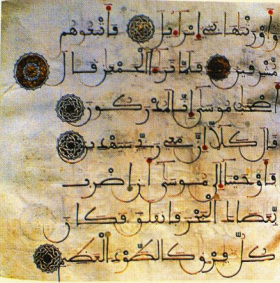 وأورثنها بني إسرءيل فأتبعوهم
مشرقين فلما ترءا الجمعن قال
أصحب موسى إنا لمدركون
قال كلا إن معي ربي سيهدين
فأوحينا إلى موسى أن اضرب
بعصاك البحر فانفلق فكان
كل فرق كالطود العظيم